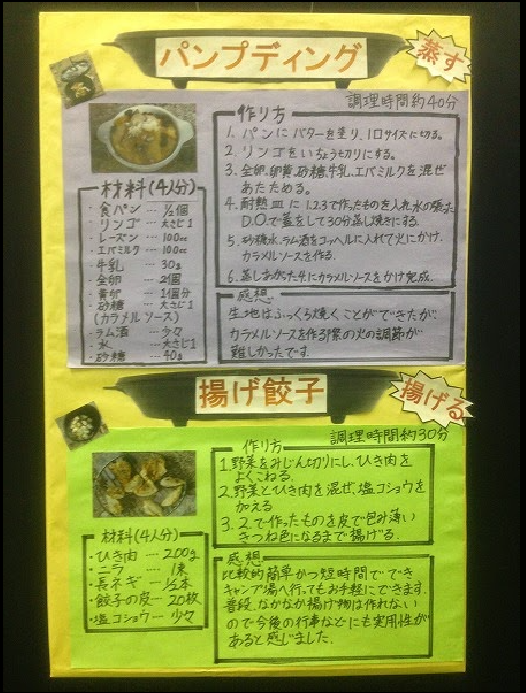 パンプディング
蒸す
調理時間約40分
材料(4人分)
・食パン … 1/2個
・リンゴ … 大さじ1
・レーズン … 100cc
・エバミルク … 100cc
・牛乳 … 30g
・全卵 … 2個
・黄卵 … 1個分
・砂糖 … 大さじ1
(カラメルソース)
・ラム酒 … 少々
・水 … 大さじ1
・砂糖 … 40g
作り方
1. パンにバターを塗り、1口サイズに切る。
2. リンゴをいちょう切りにする。
3. 全卵、卵黄、砂糖、牛乳、エバミルクを混ぜ
あたためる。
4. 耐熱皿に1.2.3で作ったものを入れ、水の張った
D.O.で蓋をして30分蒸し焼きにする。
5. 砂糖水、ラム酒をコッヘルに入れて火にかけ、
カラメルソースを作る。
6. 蒸しあがった4.にカラメルソースをかけ完成。
感想
生地はふっくら焼くことができたが
カラメルソースを作る際の火の調節が
難しかったです。
揚げ餃子
揚げる
調理時間約30分
材料(4人分)
・ひき肉 … 200g
・ニラ … 1束
・長ネギ … 1/2本
・餃子の皮 … 20枚
・塩コショウ … 少々
作り方
1. 野菜をみじん切りにし、ひき肉を
よくこねる。
2. 野菜とひき肉を混ぜ、塩コショウを
加える
3. 2.で作ったものを皮で包み薄い
きつね色になるまで揚げる。
感想
比較的簡単かつ短時間ででき
キャンプ場へ行ってもお手軽にできます。
普段、なかなか揚げ物は作れない
ので今後の行事などにも実用性が
あると感じました。